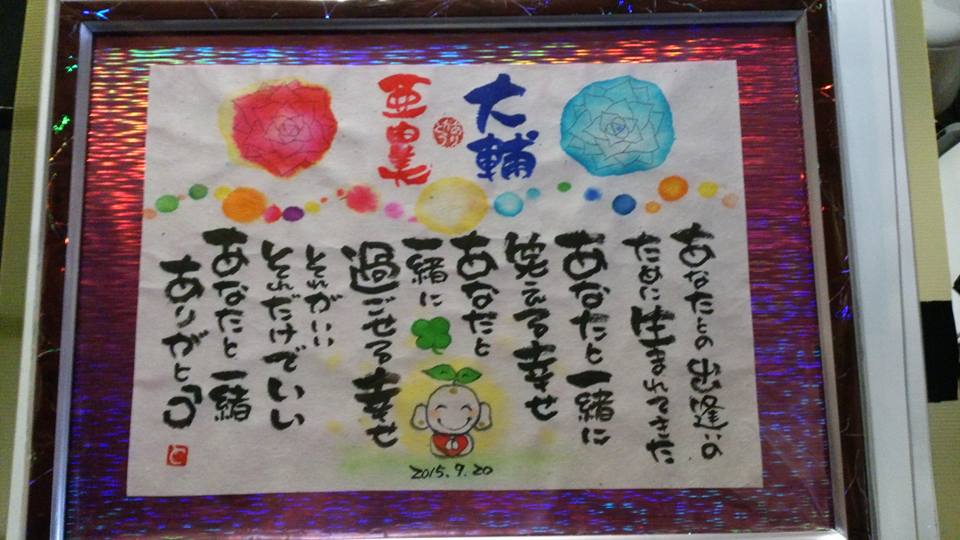 大輔
亜由美
あなたとの出逢いの
ために生まれてきた
あなたと一緒に
笑える幸せ
あなたと
一緒に
過ごせる幸せ
それがいい
それだけでいい
あなたと一緒
ありがとう
2015.9.20